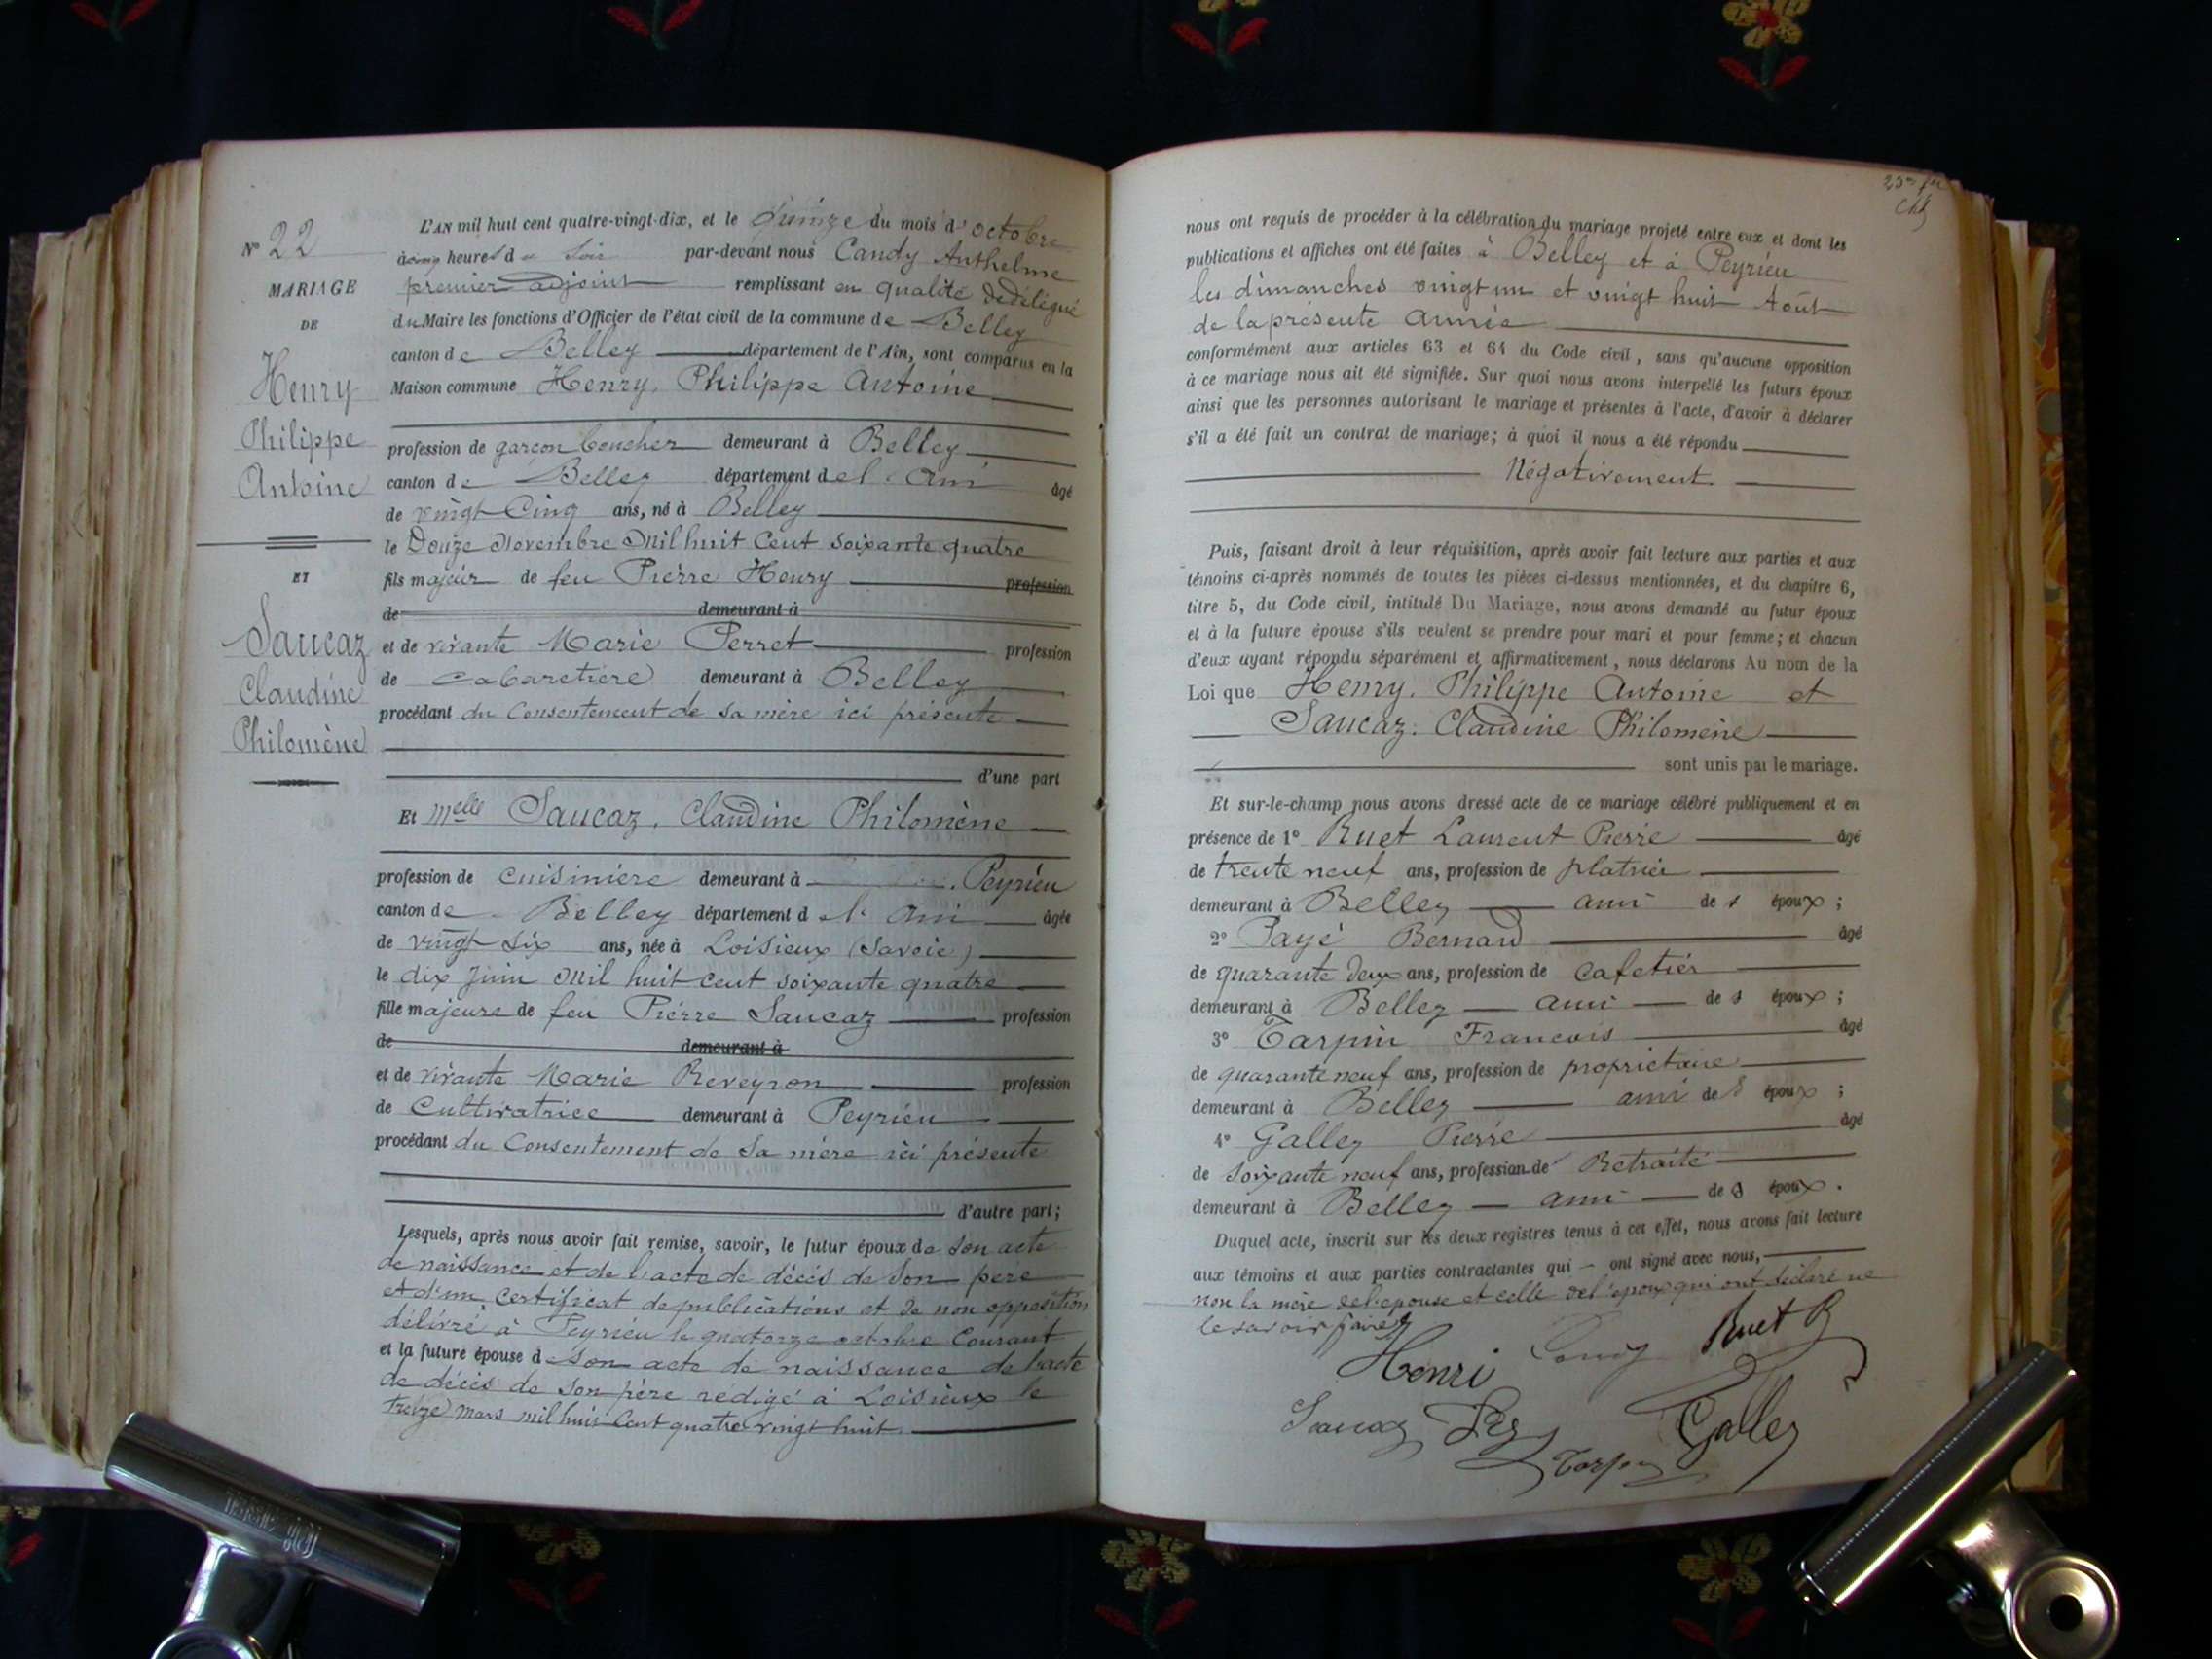 N° 22
MARIAGE
DE
Henry
Philippe
Antoine
ET
Saucaz
Claudine
Philomène
L'AN mil huit cent quatre-vingt-dix, et le Quinze du mois d'octobre
à cinq heures du Soir par-devant nous Candy Anthelme
premier adjoint remplissant en qualité de délégué
du Maire les fonctions d'Officier de l'état civil de la commune de Belley
canton de Belley département de l'Ain, sont comparus en la
Maison commune Henry, Philippe Antoine
profession de garçon boucher demeurant à Belley
canton de Belley département de l'Ain âgé
de vingt Cinq ans, né à Belley
le Douze Novembre Mil huit Cent soixante quatre
fils majeur de feu Pierre Henry profession
de demeurant à
et de vivante Marie Perret profession
de cabaretière demeurant à Belley
procédant du Consentement de sa mère ici présente
d'une part
Et Melle Saucaz, Claudine Philomène
profession de cuisinière demeurant à Peyrieu
canton de Belley département de l'Ain âgée
de vingt six ans, née à Loisieux (Savoie)
le dix Juin Mil huit Cent soixante quatre
fille majeure de feu Pierre Saucaz profession
de demeurant à
et de vivante Marie Reveyron profession
de Cultivatrice demeurant à Peyrieu
procédant du Consentement de Sa mère ici présente
d'autre part;
Lesquels, après nous avoir fait remise, savoir, le futur époux de Son acte
de naissance et de l'acte de décès de Son père
et d'un Certificat de publications et de non opposition
délivré à Peyrieu le quatorze octobre Courant
et la future épouse de Son acte de naissance de l'acte
de décès de Son père redigé à Loisieux le
treize Mars mil huit Cent quatre vingt huit
nous ont requis de procéder à la célébration du mariage projeté entre eux et dont les
publications et affiches ont été faites à Belley et à Peyrieu
les dimanches vingt un et vingt huit Août
de la présente année
conformément aux articles 63 et 64 du Code civil, sans qu'aucune opposition
à ce mariage nous ait été signifiée. Sur quoi nous avons interpellé les futurs époux
ainsi que les personnes autorisant le mariage et présentes à l'acte, d'avoir à déclarer
s'il a été fait un contrat de mariage; à quoi il nous a été répondu
Négativement.
Puis, faisant droit à leur réquisition, après avoir fait lecture aux parties et aux
témoins ci-après nommés de toutes les pièces ci-dessus mentionnées, et du chapitre 6,
titre 5, du Code civil, intitulé Du Mariage, nous avons demandé au futur époux
et à la future épouse s'ils veulent se prendre pour mari et pour femme; et chacun
d'eux ayant répondu séparément et affirmativement, nous déclarons Au nom de la
Loi que Henry. Philippe Antoine et
Saucaz. Claudine Philomène
sont unis par le mariage.
Et sur-le-champ nous avons dressé acte de ce mariage célébré publiquement et en
présence de 1° Ruet Laurent Pierre âgé
de trente neuf ans, profession de platrier
demeurant à Belley ami des époux;
2° Payé Bernard âgé
de quarante deux ans, profession de cafetier
demeurant à Belley ami des époux;
3° Tarpin Francois âgé
de quarante neuf ans, profession de propriétaire
demeurant à Belley ami des époux;
4° Galley Pierre âgé
de soixante neuf ans, profession de Retraité
demeurant à Belley ami des époux.
Duquel acte, inscrit sur les deux registres tenus à cet effet, nous avons fait lecture
aux témoins et aux parties contractantes qui ont signé avec nous,
non la mère de l'épouse et celle de l'époux qui ont déclaré ne
le savoir faire
Henri Candy Ruet
Saucaz Galley
Tarpin